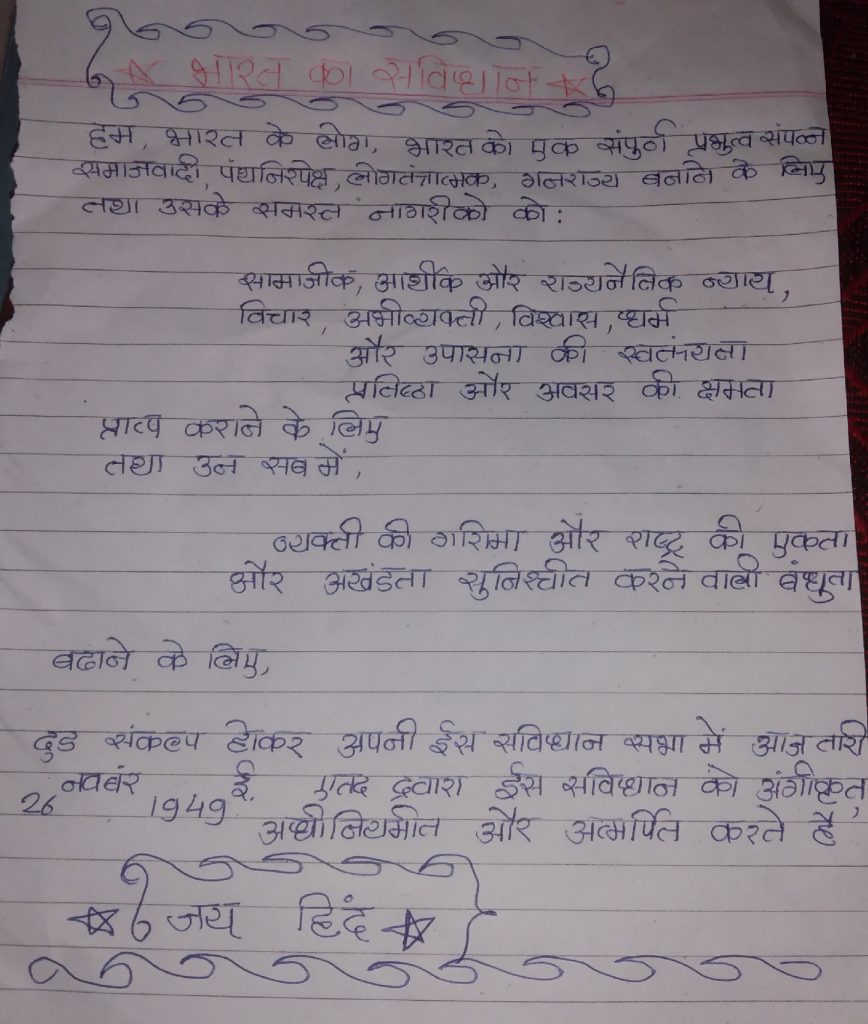 भारत का सविधान
हम, भारत के लोग, भारत को एक संपुर्ण प्रभुत्व संपन्न
समाजवादी, पंथनिरपेक्ष, लोगतंत्रात्मक, गनराज्य बनाने के लिए
तथा उसके समस्त नागरीको को :
सामाजीक, आर्थीक और राज्यनैतिक न्याय,
विचार, अभीव्यक्ती, विश्वास, धर्म
और उपासना की स्वतंत्रयता
प्रतिष्ठा और अवसर की क्षमता
प्राप्त कराने के लिए
तथा उन सब में,
व्यक्ती की गरिमा और राष्ट्र की एकता
और अखंडता सुनिश्चीत करने वाली बंधुता
बढाने के लिए,
दुड संकल्प होकर अपनी ईस सविधान सभा में आज तारी
26 नवबंर 1949 ई. एतद द्वारा ईस सविधान को अंगीकृत,
अधीनियमीत और अत्मर्पित करते है
जय हिंद